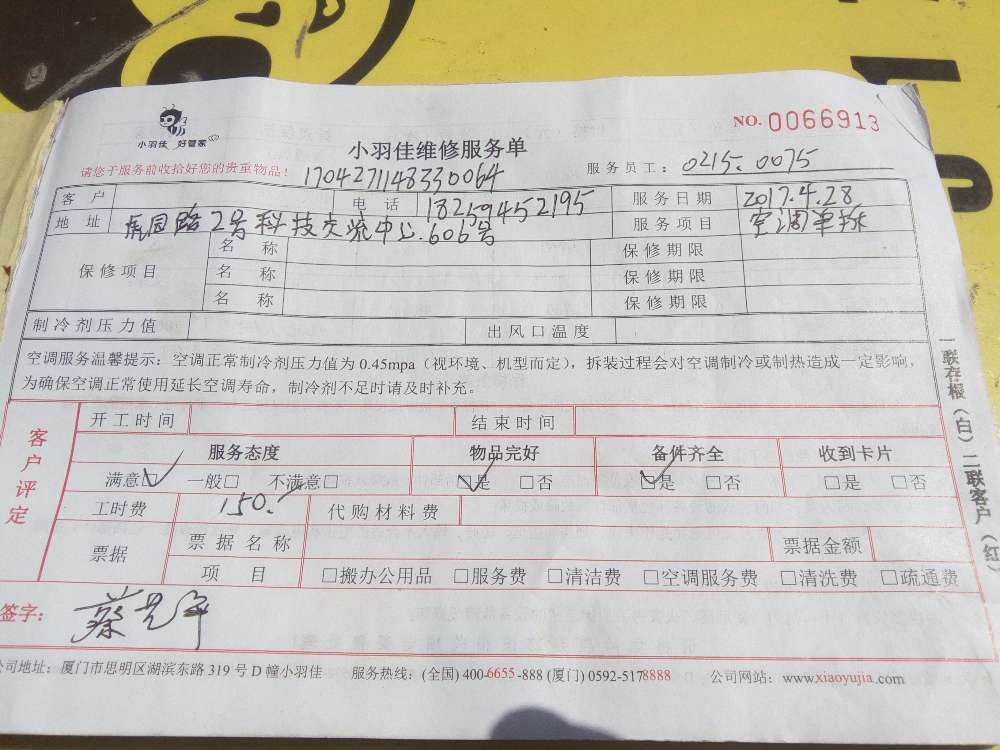 小羽佳 好管家
NO. 0066913
小羽佳维修服务单
请您于服务前收拾好您的贵重物品！
1704271148330064
服务员工： 0215.0075
客 户 电 话 18259452195 服务日期 2017.4.28
地 址 虎园路2号科技交流中心.606号 服务项目 空调单拆
保修项目
名 称 保修期限
名 称 保修期限
名 称 保修期限
制冷剂压力值 出风口温度
空调服务温馨提示：空调正常制冷剂压力值为 0.45mpa（视环境、机型而定），拆装过程会对空调制冷或制热造成一定影响，
为确保空调正常使用延长空调寿命，制冷剂不足时请及时补充。
客户评定
开工时间 结束时间
服务态度 物品完好 备件齐全 收到卡片
满意☑ 一般□ 不满意□ ☑是 □否 ☑是 □否 □是 □否
工时费 150. 代购材料费
票据 票据名称 票据金额
项 目 □搬办公用品 □服务费 □清洁费 □空调服务费 □清洗费 □疏通费
签字：
公司地址：厦门市思明区湖滨东路 319 号 D 幢小羽佳 服务热线：(全国) 400-6655-888 (厦门) 0592-5178888 公司网站：www.xiaoyujia.com
一联存根（白）二联客户（红）